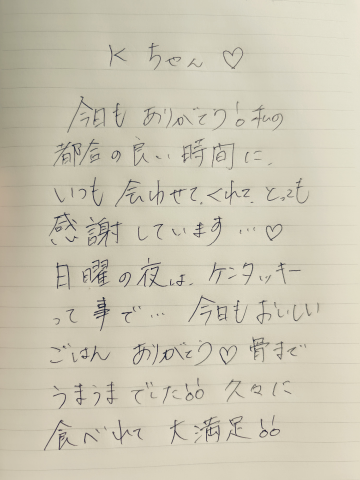 Kちゃん♡
今日も ありがとう!私の
都合の良い時間に、
いつも 会わせて、くれて、とっても
感謝しています…♡
日曜の夜は、ケンタッキー
って事で… 今日もおいしい
ごはん ありがとう♡骨まで
うまうまでした!!
久々に
食べれて 大満足!!